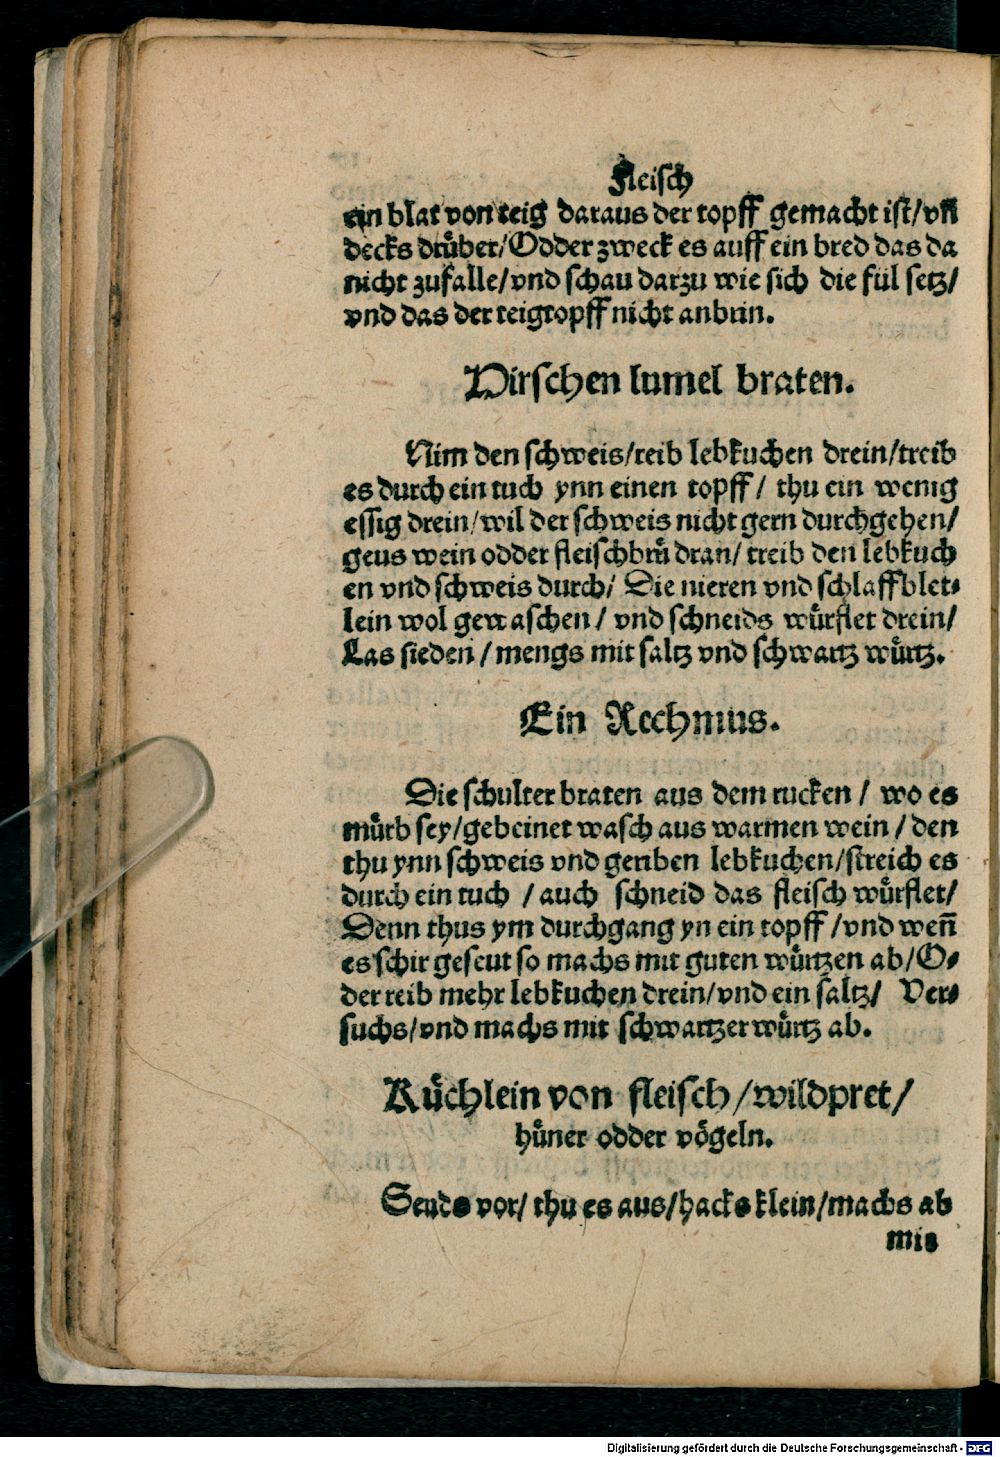 Fleisch
ein blat von teig daraus der topff gemacht ist/vñ
decks druͤber/Odder zweck es auff ein bred das da
nicht zufalle/vnd schau darzu wie sich die fül setz/
vnd das der teigtopff nicht anbrin.
Hirschen lumel braten.
Nim den schweis/reib lebkuchen drein/treib
es durch ein tuch ynn einen topff/ thu ein wenig
essig drein/wil der schweis nicht gern durchgehen/
geus wein odder fleischbruͤ dran/ treib den lebkuch
en vnd schweis durch/ Die nieren vnd schlaffblet-
lein wol gewaschen/ vnd schneids wuͤrflet drein/
Las sieden/mengs mit saltz vnd schwartz wuͤrtz.
Ein Rechmus.
Die schulter braten aus dem rucken/ wo es
muͤrb sey/gebeinet wasch aus warmen wein/den
thu ynn schweis vnd geriben lebkuchen/streich es
durch ein tuch /auch schneid das fleisch wuͤrflet/
Denn thus ym durchgang yn ein topff/vnd weñ
es schir geseut so machs mit guten wuͤrtzen ab/O-
der reib mehr lebkuchen drein/vnd ein saltz/ Ver-
suchs/vnd machs mit schwartzer wuͤrtz ab.
Kuͤchlein von fleisch/wildpret/
huͤner odder voͤgeln.
Seuds vor/ thu es aus/hacks klein/machs ab
mit
Digitalisierung gefördert durch die Deutsche Forschungsgemeinschaft - DFG